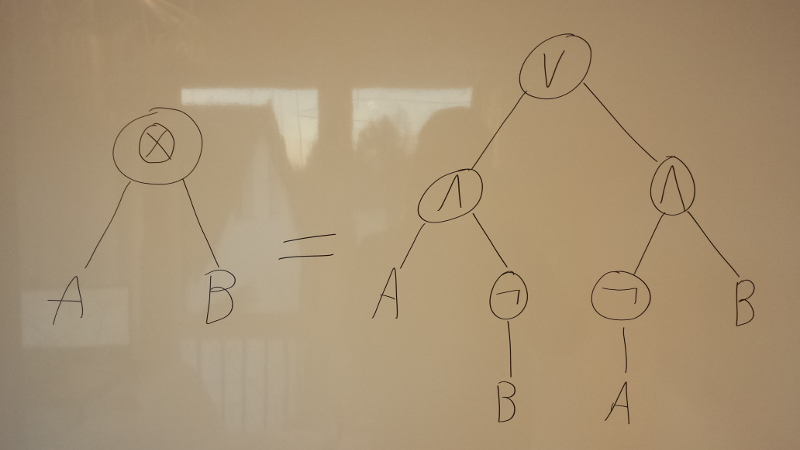 ∨
⊗ ∧ ∧
A B = A ¬ ¬ B
B A